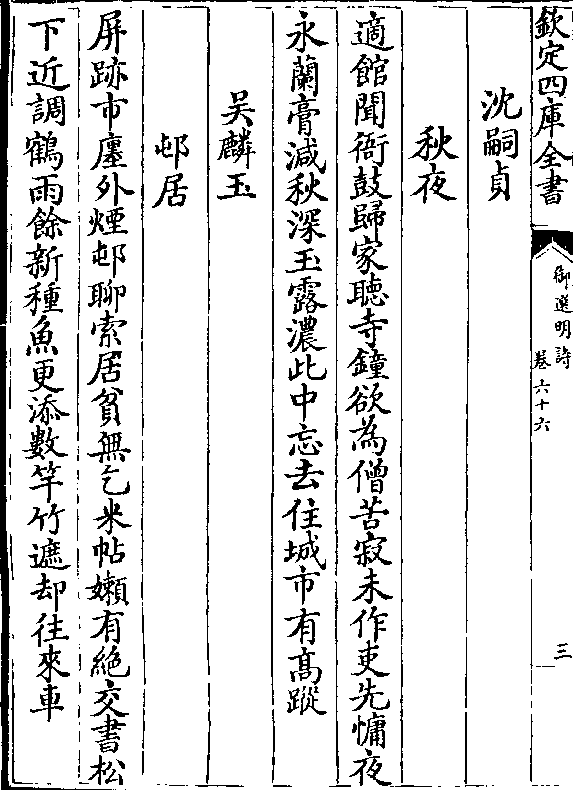 欽定四庫全書
御選明詩
卷六十六
三
沈嗣貞
秋夜
適館聞衙鼓歸家聽寺鐘欲為僧苦寂未作吏先慵夜
永蘭膏減秋深玉露濃此中忘去住城市有髙蹤
吴麟玉
邨居
屏跡市廛外煙邨聊索居貧無乞米帖嬾有絶交書松
下近調鶴雨餘新種魚更添數竿竹遮却往來車